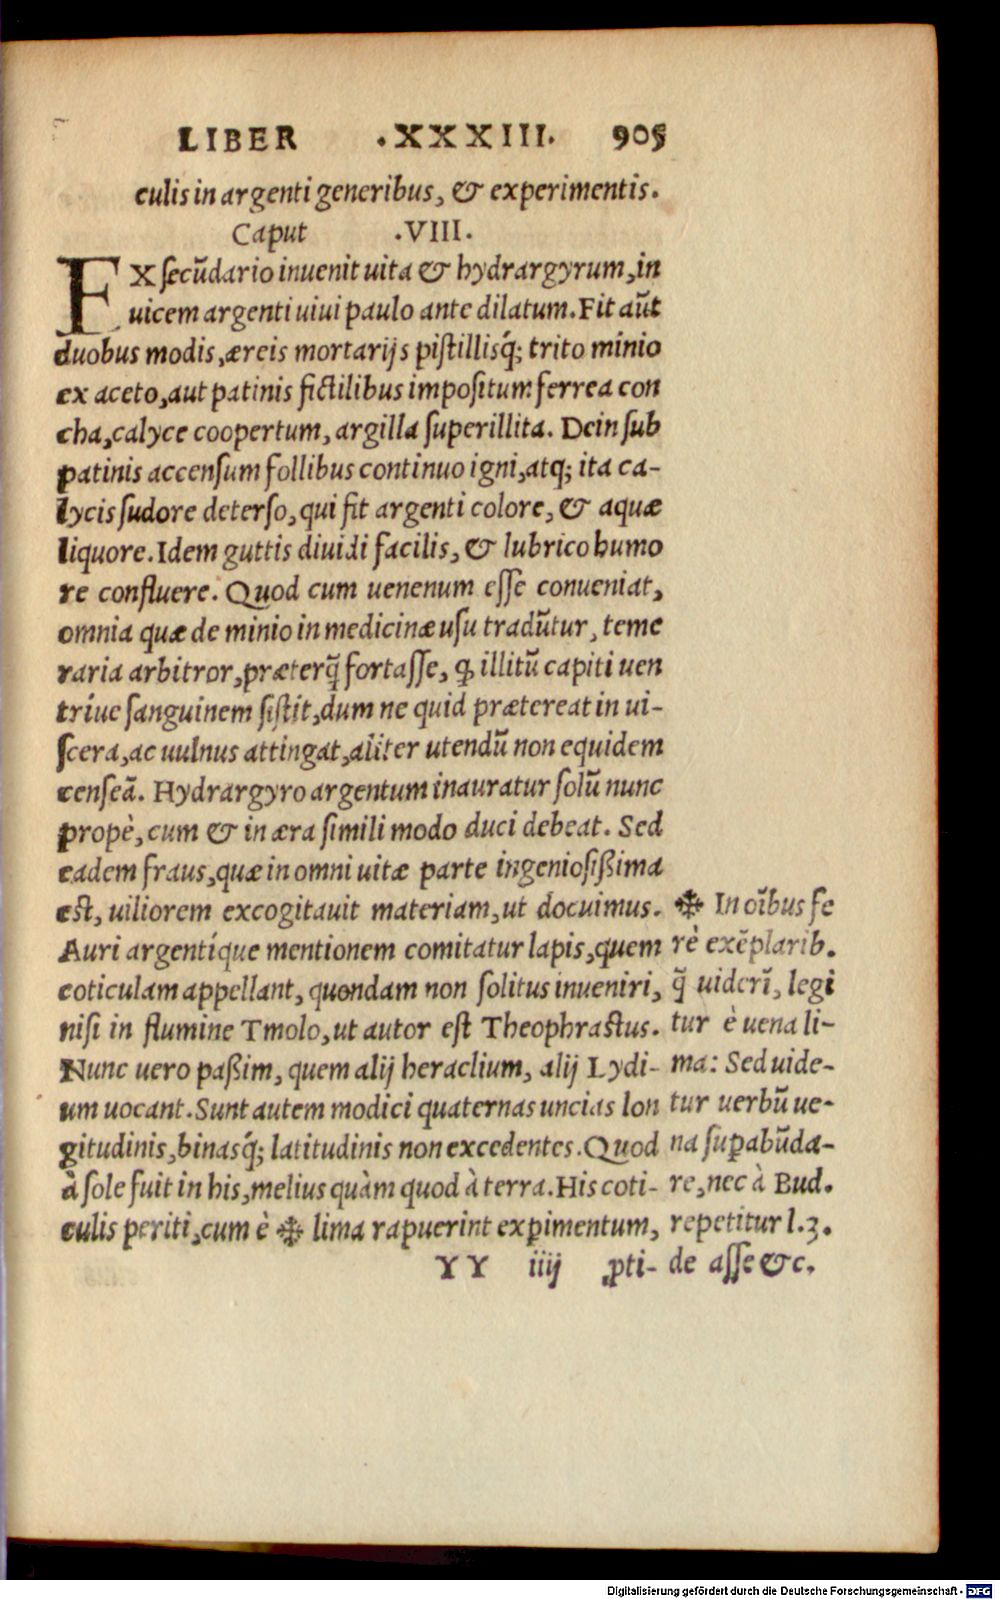 LIBER .XXXIII. 905
culis in argenti generibus, & experimentis.
Caput .VIII.
EX secūdario inuenit uita & hydrargyrum, in
uicem argenti uiui paulo ante dilatum. Fit aūt
duobus modis, æreis mortarijs pistillisq́; trito minio
ex aceto, aut patinis fictilibus impositum ferrea con
cha, calyce coopertum, argilla superillita. Dein sub
patinis accensum follibus continuo igni, atq; ita ca-
lycis sudore deterso, qui fit argenti colore, & aquæ
liquore. Idem guttis diuidi facilis, & lubrico humo
re confluere. Quod cum uenenum esse conueniat,
omnia quæ de minio in medicinæ usu tradūtur, teme
raria arbitror, præterq̃ fortasse, ꝙ illitū capiti uen
triue sanguinem sistit, dum ne quid prætereat in ui-
scera, ac uulnus attingat, aliter utendū non equidem
censeā. Hydrargyro argentum inauratur solū nunc
propè, cum & in æra simili modo duci debeat. Sed
eadem fraus, quæ in omni uitæ parte ingeniosißima
est, uiliorem excogitauit materiam, ut docuimus.
Auri argentíque mentionem comitatur lapis, quem
coticulam appellant, quondam non solitus inueniri,
nisi in flumine Tmolo, ut autor est Theophrastus.
Nunc uero paßim, quem alij heraclium, alij Lydi-
um uocant. Sunt autem modici quaternas uncias lon
gitudinis, binasq́; latitudinis non excedentes. Quod
à sole fuit in his, melius quàm quod à terra. His coti-
culis periti, cum è ❉ lima rapuerint exꝑimentum,
YY iiij ꝓti-
❉ In oībus fe
rè exēplarib.
q̃ uiderī, legi
tur è uena li-
ma: Sed uide-
tur uerbū ue-
na suꝑabūda-
re, nec à Bud.
repetitur l.3.
de asse &c.
Digitalisierung gefördert durch die Deutsche Forschungsgemeinschaft - DFG